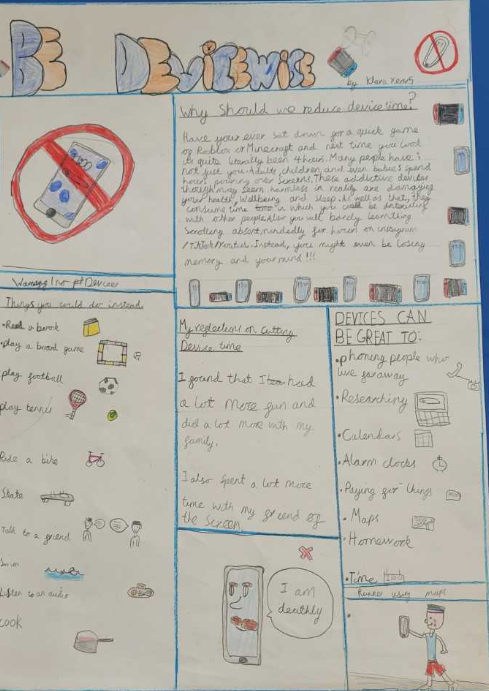 BE DEVICEWISE
by Klara
Why should we reduce device time?
Have your ever sat down for a quick game
of Roblox or Minecraft and next time you look
is quite literally been 4 hours. Many people have;
not just you. Adults, children, and even babies spend
hours pouring over screens. These addictive devices
though may seem harmless in reality are damaging
your health, wellbeing and sleep. As well as that, they
consume time in which you could be
with other people. Also you will
Scrolling absentmindedly for hours on instagram
/TikTok/ Instead, you might even be losing
memory and your mind!!!
Warning! no pet Devices
Things you could do instead
•Read a book
•play a board game
play football
play tennis
Ride a bike
Skate
Talk to a friend
Swim
Listen to an audio
cook
My reflections on cutting
Device time
I found that I had
a lot more fun and
did a lot more with my
family.
I also spent a lot more
time with my friend of
the screen
I am
deathly
DEVICES CAN
BE GREAT TO:
•phoning people who
live faraway
•Researching
•Calendars
•Alarm clocks
•Paying for things
•Maps
•Homework
•Time
Runner using maps